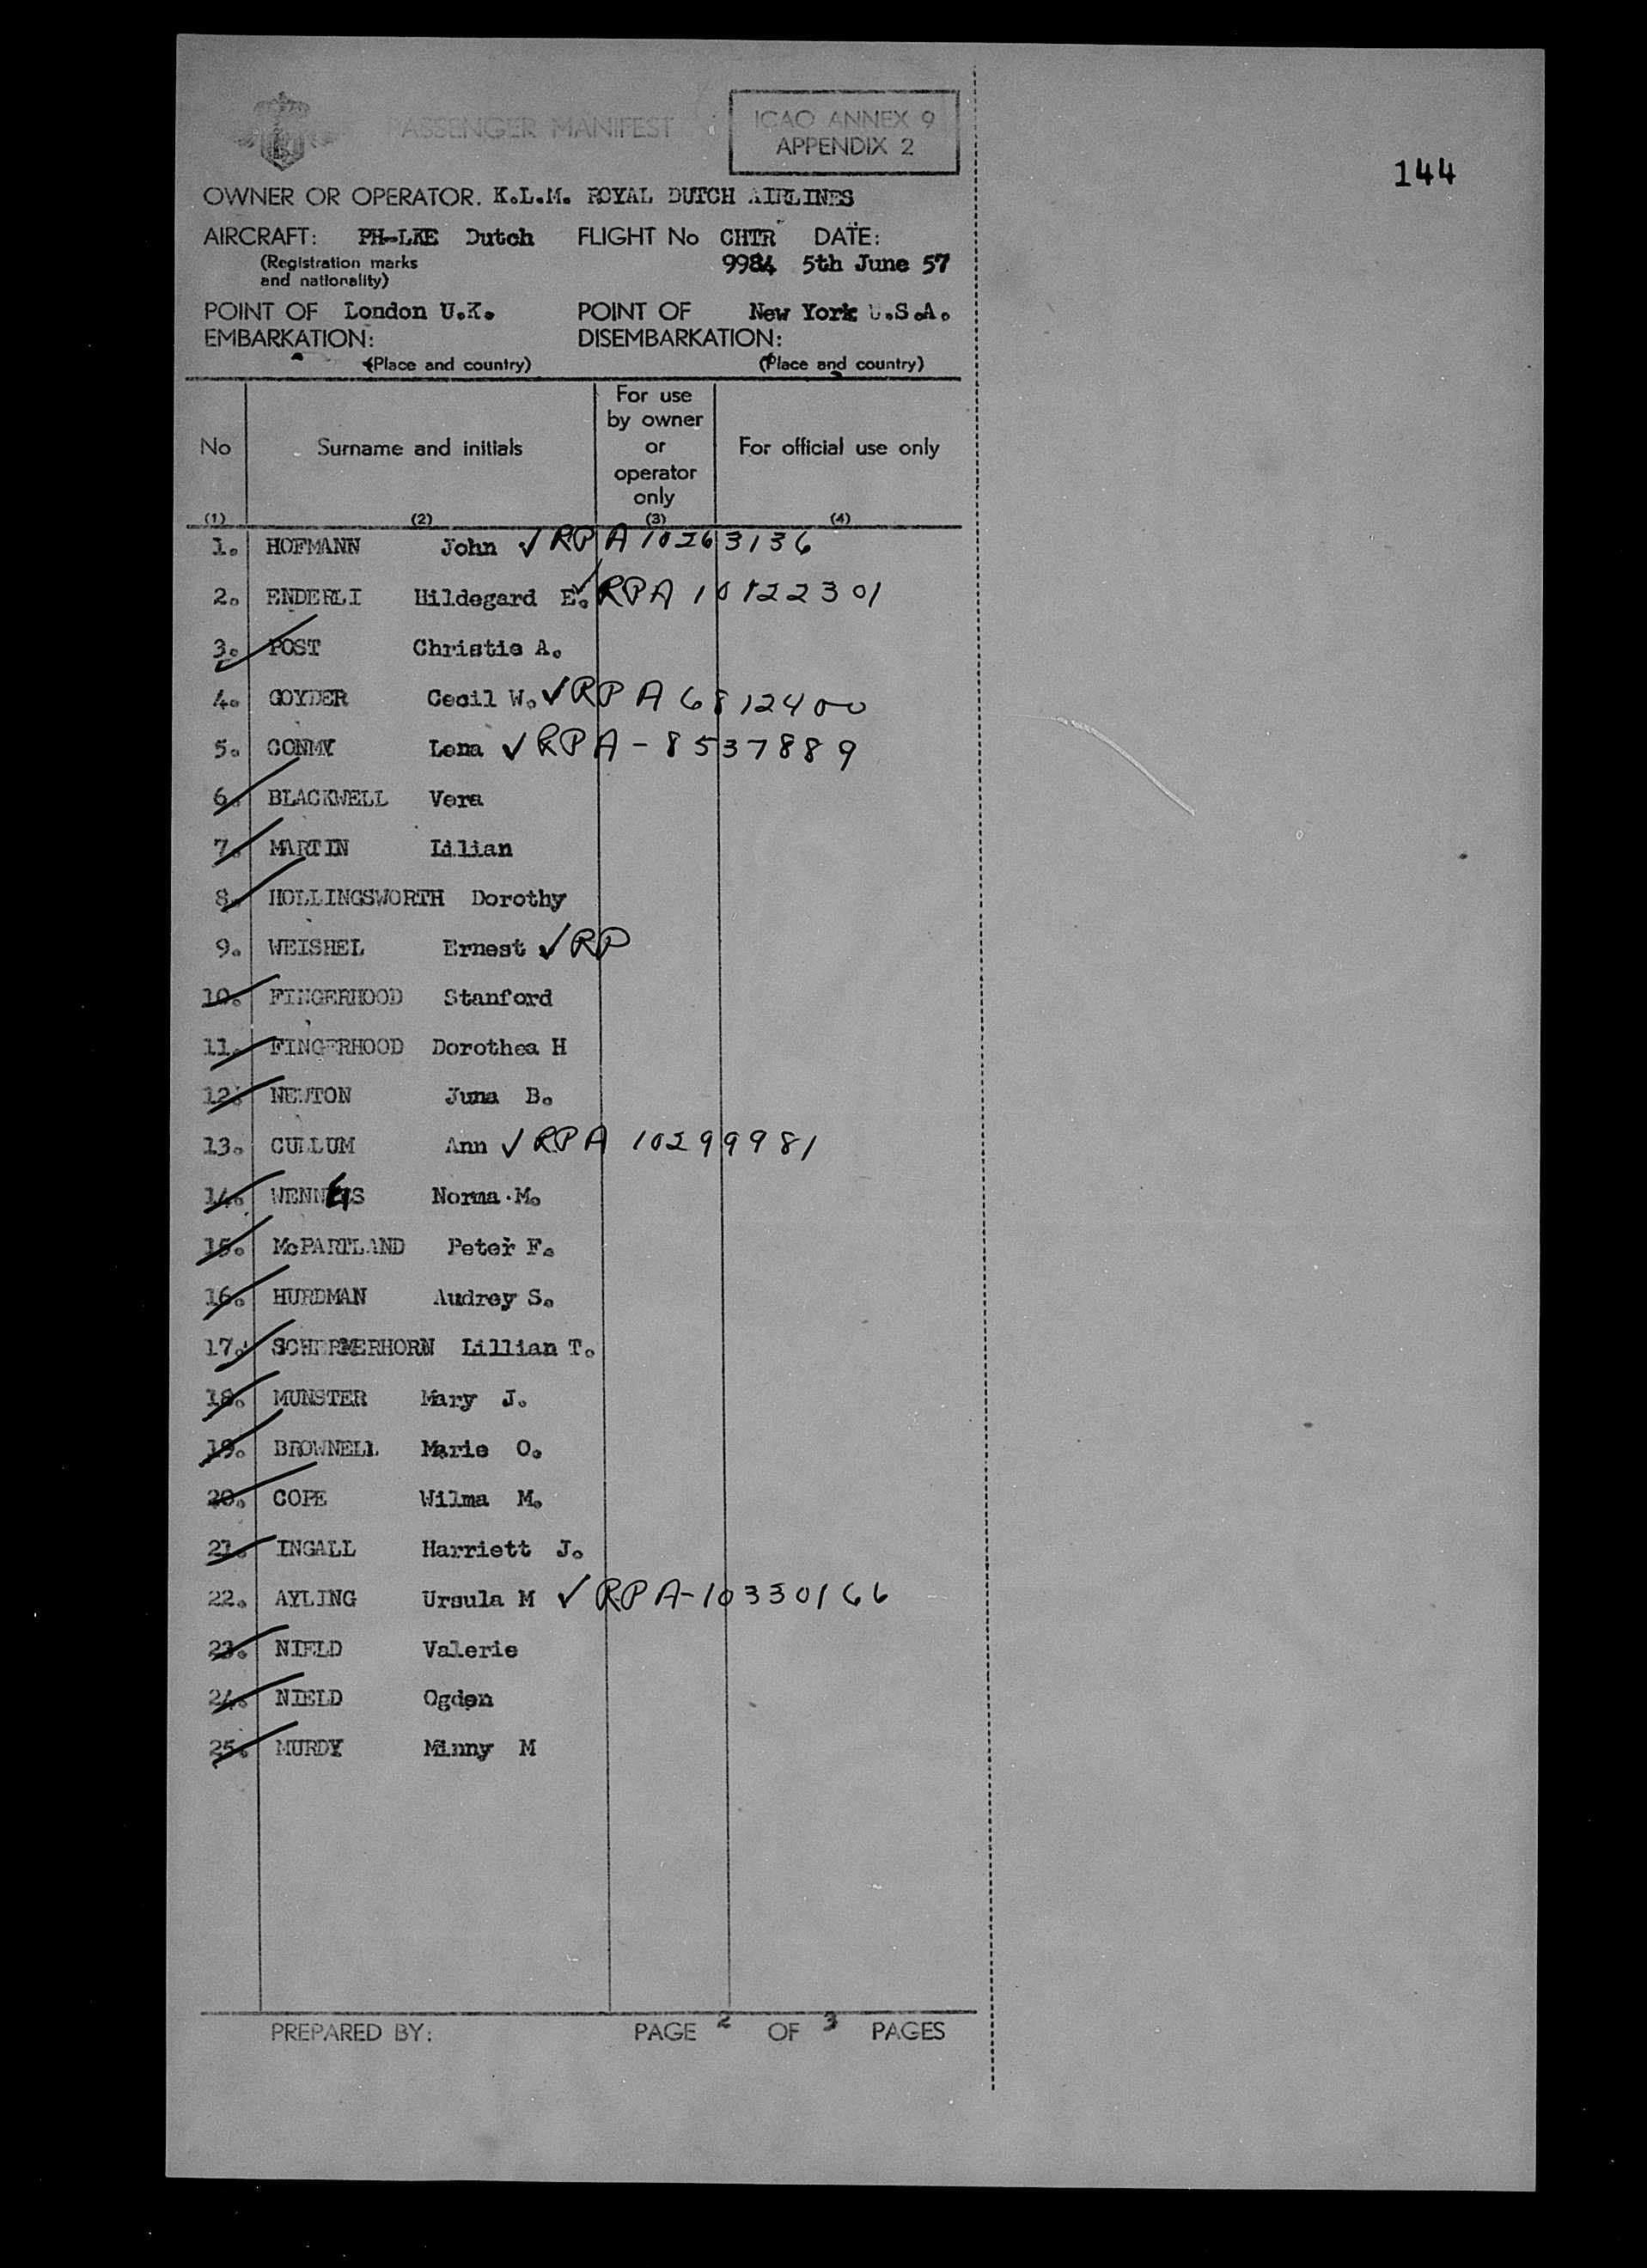 PASSENGER MANIFEST
ICAO ANNEX 9
APPENDIX 2
144
OWNER OR OPERATOR. K.L.M. ROYAL DUTCH AIRLINES
AIRCRAFT: PH-LKE Dutch FLIGHT No CHTR DATE:
(Registration marks 9984 5th June 57
and nationality)
POINT OF London U.K. POINT OF New York U.S.A.
EMBARKATION: DISEMBARKATION:
(Place and country) (Place and country)
For use
by owner
No Surname and initials or For official use only
operator
only
(1) (2) (3) (4)
1. HOFMANN John ✓ RP A 10263136
2. ENDERLI Hildegard E. ✓ RPA 10122301
3. POST Christie A.
4. GOYDER Cecil W. ✓ RP A 6812400
5. CONMY Lena ✓ RPA - 8537889
6. BLACKWELL Vera
7. MARTIN Lilian
8. HOLLINGSWORTH Dorothy
9. WEISHEL Ernest ✓ RP
10. FINGERHOOD Stanford
11. FINGERHOOD Dorothea H
12. NEWTON Juna B.
13. CULLUM Ann ✓ RPA 10299981
14. Norma M.
15. McPARTLAND Peter F.
16. HURDMAN Audrey S.
17. SCHERMERHORN Lillian T.
18. MUNSTER Mary J.
19. BROWNELL Marie O.
20. COPE Wilma M.
21. INGALL Harriett J.
22. AYLING Ursula M ✓ RPA-10330166
23. NIELD Valerie
24. NIELD Ogden
25. MURDY Minny M
PREPARED BY: PAGE 2 OF 3 PAGES